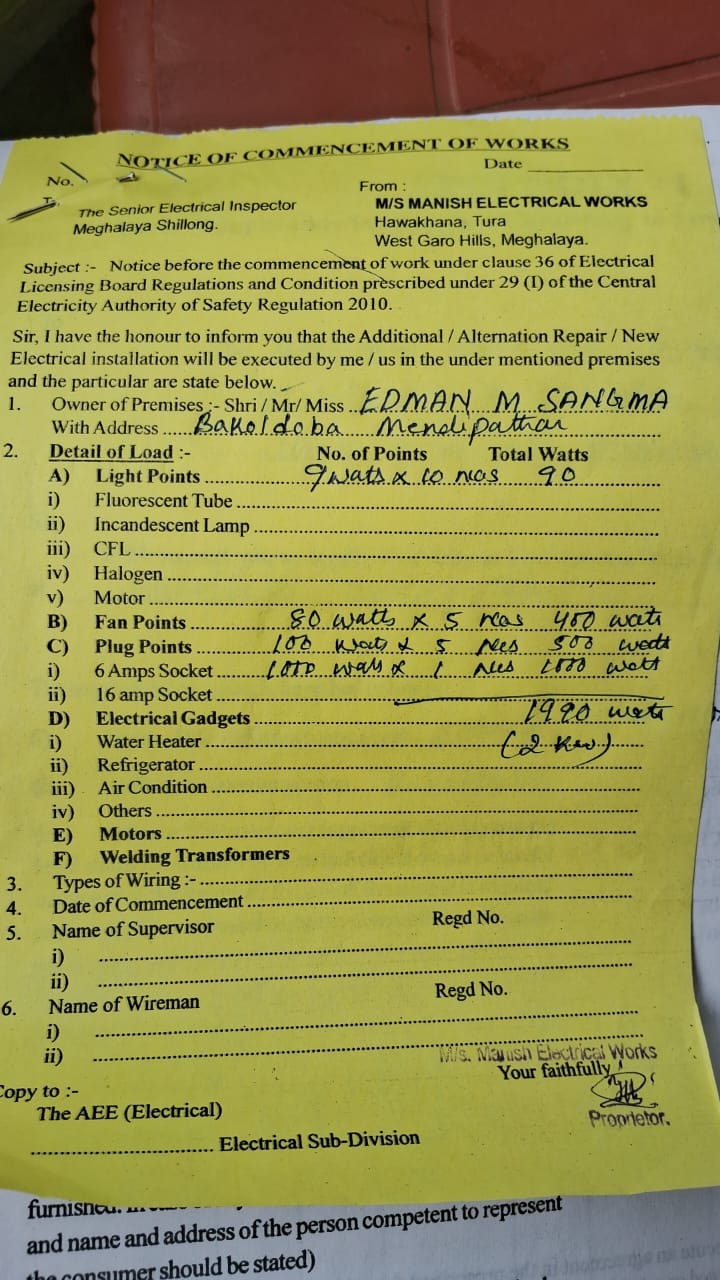 NOTICE OF COMMENCEMENT OF WORKS
No.
Date
To,
The Senior Electrical Inspector
Meghalaya Shillong.
From :
M/S MANISH ELECTRICAL WORKS
Hawakhana, Tura
West Garo Hills, Meghalaya.
Subject :- Notice before the commencement of work under clause 36 of Electrical
Licensing Board Regulations and Condition prescribed under 29 (I) of the Central
Electricity Authority of Safety Regulation 2010.
Sir, I have the honour to inform you that the Additional / Alternation Repair / New
Electrical installation will be executed by me / us in the under mentioned premises
and the particular are state below.
1. Owner of Premises :- Shri / Mr/ Miss ..EDMAN M SANGMA
With Address ..... Bakoldoba Mendipathar
2. Detail of Load :- No. of Points Total Watts
A) Light Points ..... 9 watts x 10 nos 90
i) Fluorescent Tube
ii) Incandescent Lamp
iii) CFL
iv) Halogen
v) Motor
B) Fan Points ..... 80 watts x 5 nos 400 watts
C) Plug Points ..... 100 watts x 5 nos 500 watts
i) 6 Amps Socket ..... 1000 watts x 1 nos 1000 watt
ii) 16 amp Socket
D) Electrical Gadgets ..... 1990 watts
i) Water Heater ..... (2 kw)
ii) Refrigerator
iii) Air Condition
iv) Others
E) Motors
F) Welding Transformers
3. Types of Wiring :-
4. Date of Commencement
5. Name of Supervisor Regd No.
i)
ii)
6. Name of Wireman Regd No.
i)
ii)
M/s. Manish Electrical Works
Your faithfully
Proprietor.
Copy to :-
The AEE (Electrical)
Electrical Sub-Division
furnished.
and name and address of the person competent to represent
the consumer should be stated)